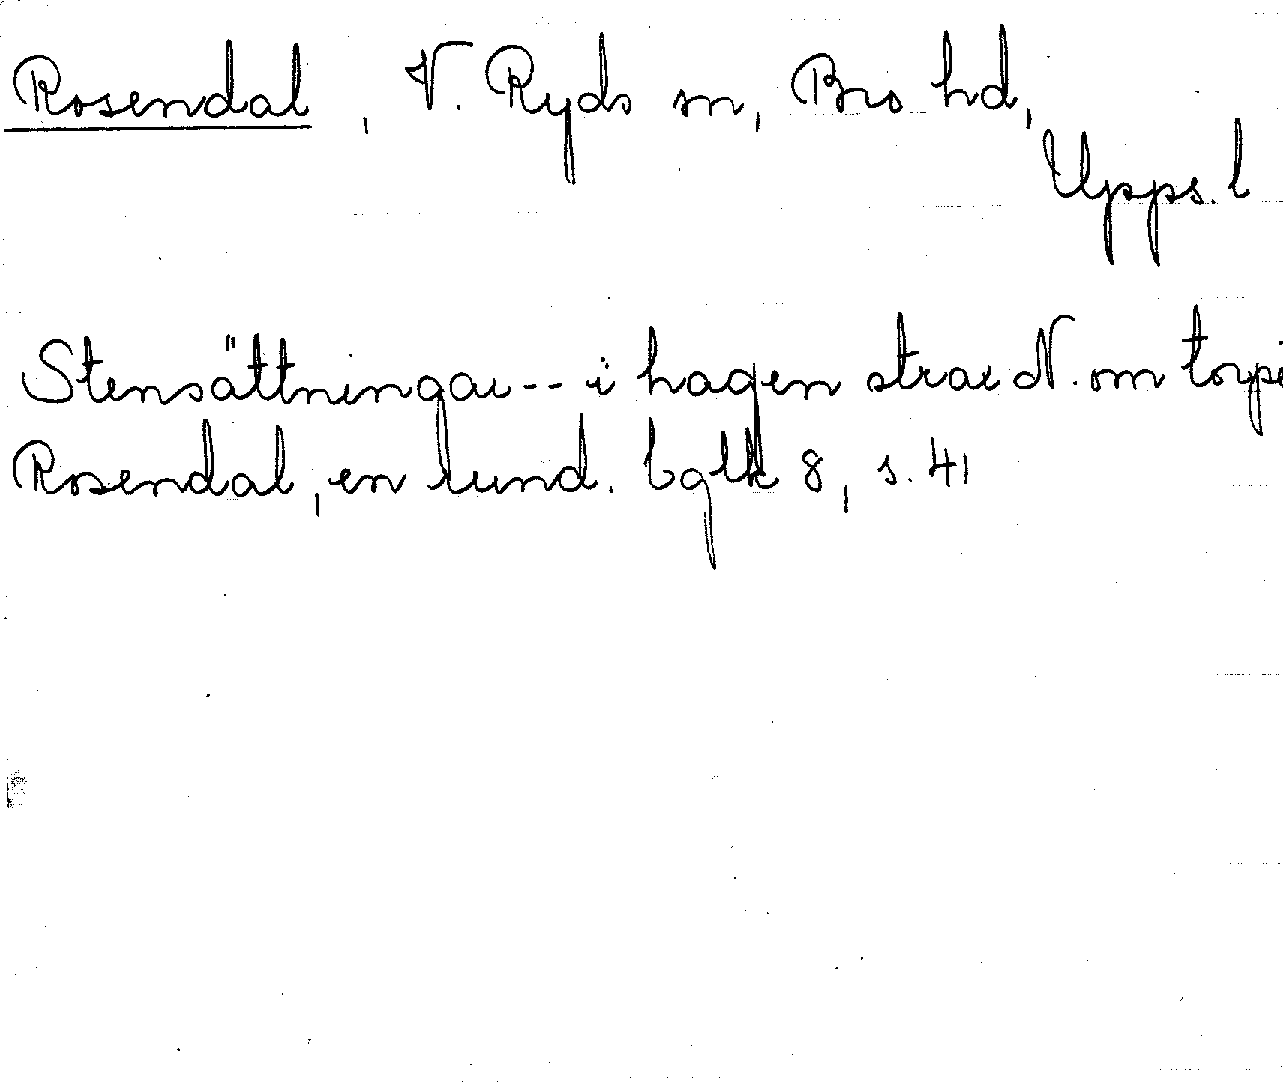 Rosendal, V. Ryds sn, Bro hd,
Upps. l
Stensättningar -- i hagen strax N. om
Rosendal, en rund. bglk 8, s. 41